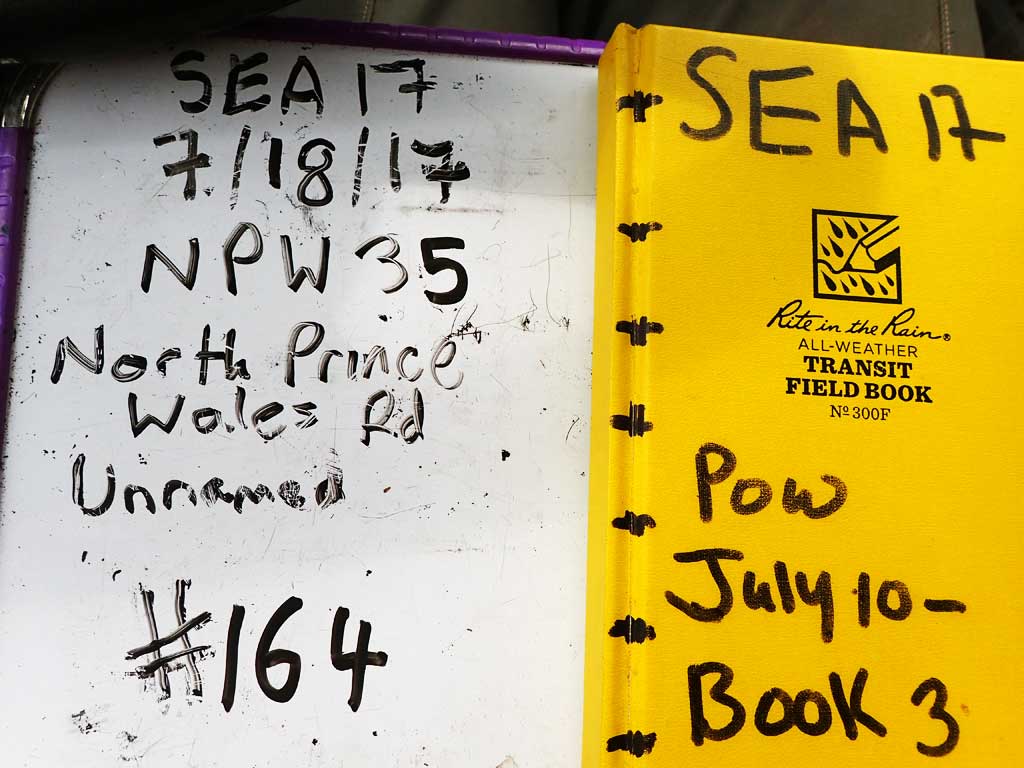 SEA 17
7/18/17
NPW 35
North Prince
Wales Rd
Unnamed
#164
SEA 17
Rite in the Rain®
ALL-WEATHER
TRANSIT
FIELD BOOK
Nº 300F
POW
July 10-
Book 3